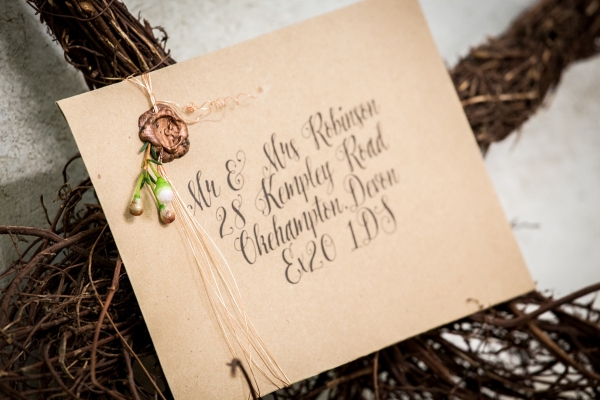 Mr & Mrs Robinson
28 Kempley Road
Okehampton, Devon
Ex20 1DS